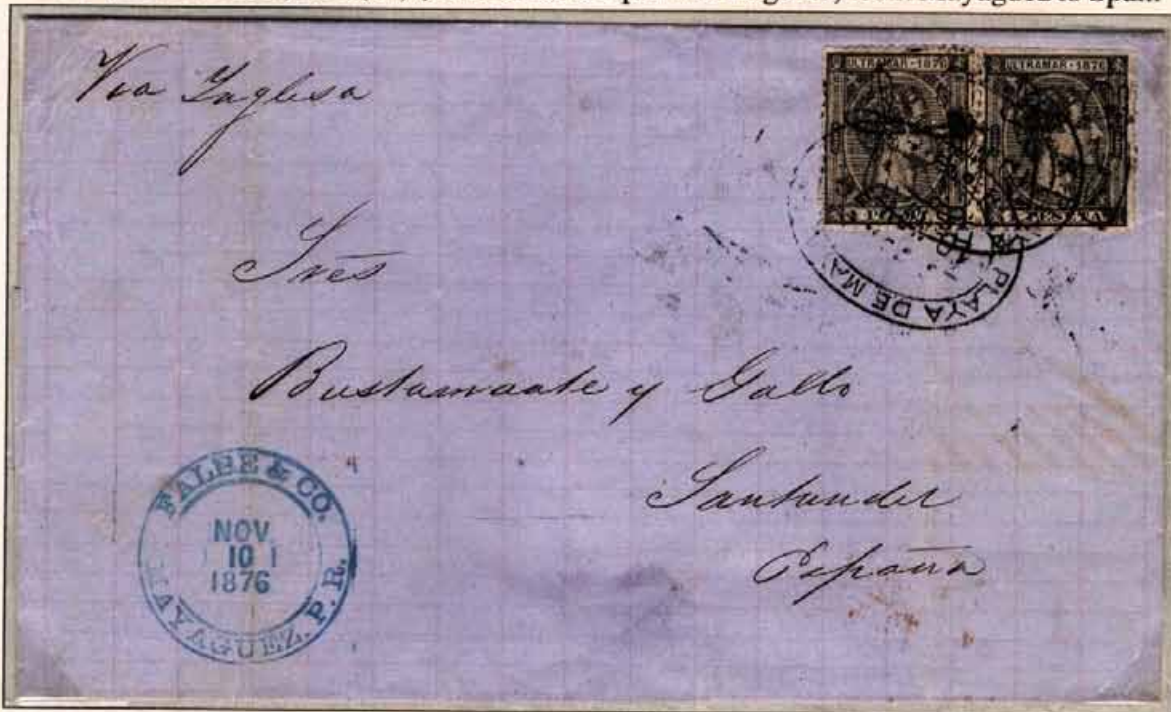 Via Ynglesa
ULTRAMAR · 1876
ULTRAMAR · 1876
1 PESETA
PLAYA DE MA
Sres
Bustamante y Gallo
Santander
España
FALBE & CO.
NOV
10
1876
MAYAGUEZ. P. R.